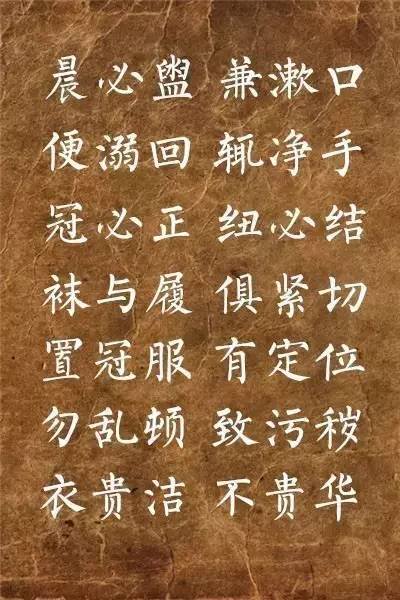 晨必盥 兼漱口
便溺回 辄净手
冠必正 纽必结
袜与履 俱紧切
置冠服 有定位
勿乱顿 致污秽
衣贵洁 不贵华